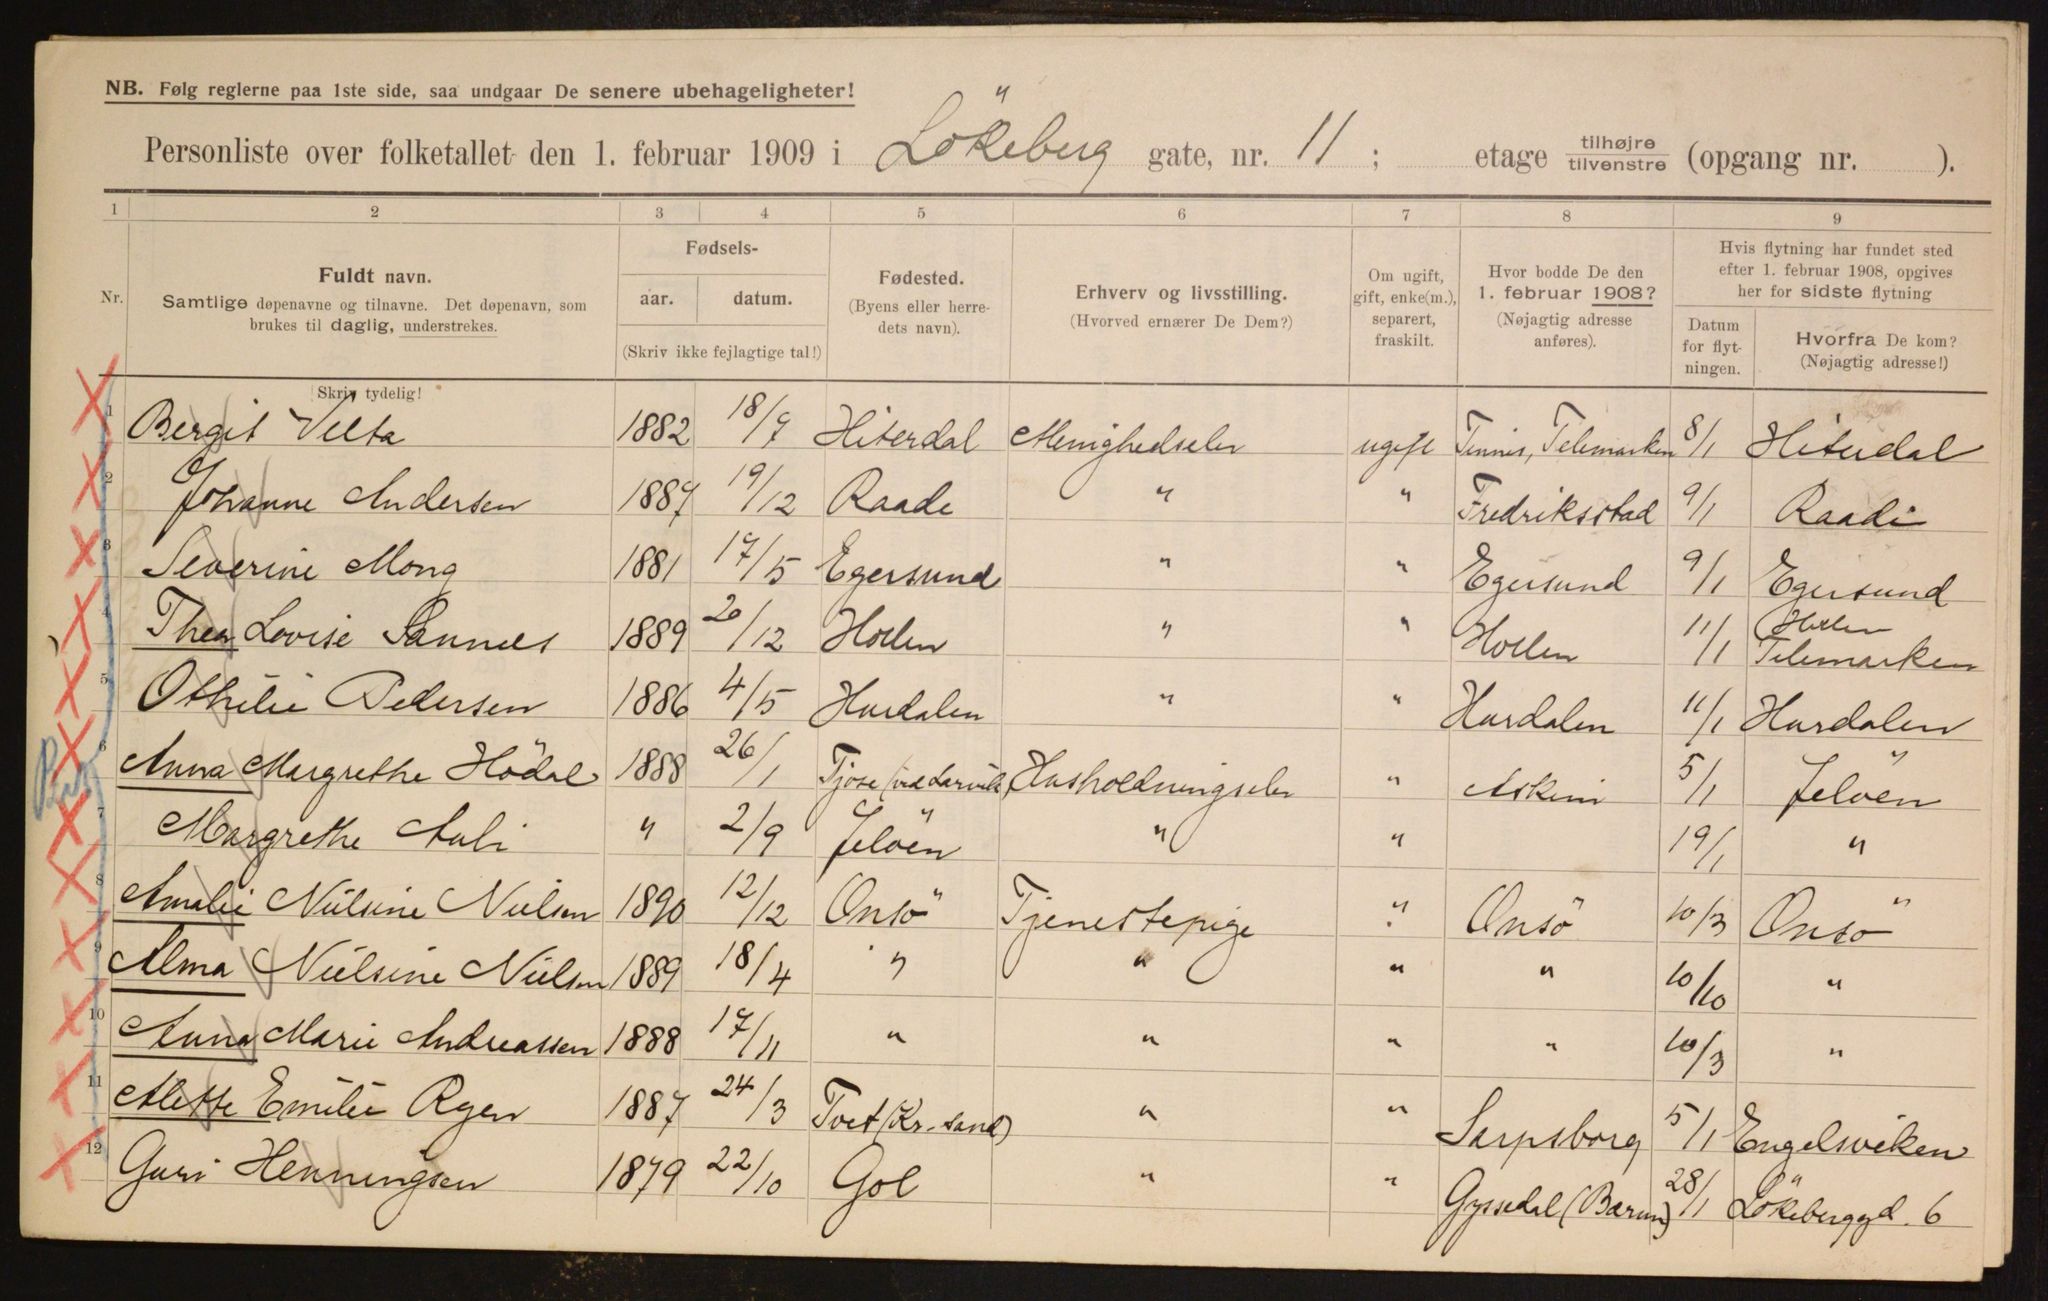 NB. Følg reglerne paa 1ste side, saa undgaar De senere ubehageligheter!
Personliste over folketallet den 1. februar 1909 i Lökeberg gate, nr. 11; etage tilhøjre tilvenstre (opgang nr. ).
1 2 3 4 5 6 7 8 9
Nr.
Fuldt navn.
Samtlige døpenavne og tilnavne. Det døpenavn, som
brukes til daglig, understrekes.
Skriv tydelig!
Fødsels-
aar. datum.
(Skriv ikke fejlagtige tal!)
Fødested.
(Byens eller herre-
dets navn).
Erhverv og livsstilling.
(Hvorved ernærer De Dem?)
Om ugift,
gift, enke(m.),
separert,
fraskilt.
Hvor bodde De den
1. februar 1908?
(Nøjagtig adresse
anføres).
Hvis flytning har fundet sted
efter 1. februar 1908, opgives
her for sidste flytning
Datum
for flyt-
ningen.
Hvorfra De kom?
(Nøjagtig adresse!)
1 Bergit Velta 1882 18/9 Hiterdal Menighedselev ugift Tinnes, Telemarken 8/1 Hiterdal
2 Johanne Andersen 1887 19/12 Raade " " Fredriksstad 9/1 Raade
3 Severine Mong 1881 17/5 Egersund " " Egersund 9/1 Egersund
4 Thea Lovise Sannes 1889 20/12 Hollen " " Hollen 11/1 Hollen Telemarken
5 Othilie Pedersen 1886 4/5 Hurdalen " " Hurdalen 11/1 Hurdalen
6 Anna Margrethe Hödal 1888 26/1 Tjose (ved Larvik) Husholdningselev " Askim 5/1 Jelöen
7 Margrethe Auli " 2/9 Jelöen " " 19/1 "
8 Amalie Nielsine Nielsen 1890 12/12 Onsö Tjenestepige " Onsö 10/3 Onsö
9 Alma Nielsine Nielsen 1889 18/4 " " " " 10/10 "
10 Anna Marie Andreassen 1888 17/11 " " " " 10/3 "
11 Alette Emilie Ryen 1887 24/3 Tvet (Kr.sand) " " Sarpsborg 5/1 Engelsviken
12 Guri Henningsen 1879 22/10 Gol " " Gyssedal (Bærum) 28/1 Lökeberggd. 6